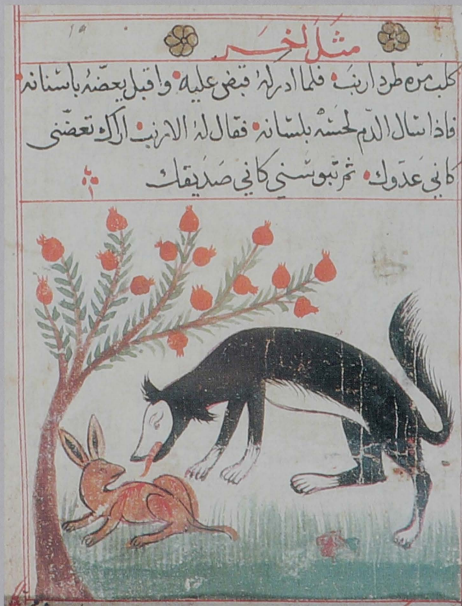 مثل اخر
كلب مرّه طرد ارنبا فلما ادركهُ قبض عليه واقبل يعضّهُ باسنانه
فاذا سال الدّم لحسَهُ بلسَانه فقال لهُ الارنب اراك تعضّني
كاني عَدوّك ثم تبوسَني كاني صَديقك